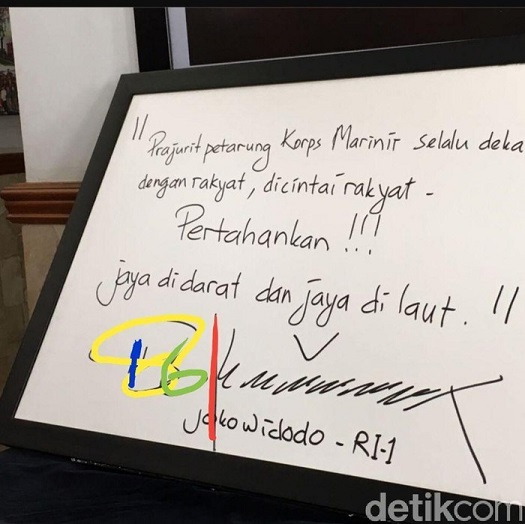 "Prajurit petarung Korps Marinir selalu deka
dengan rakyat, dicintai rakyat -
Pertahankan !!!
jaya di darat dan jaya di laut. "
16
Joko widodo - RI-1
detikcom